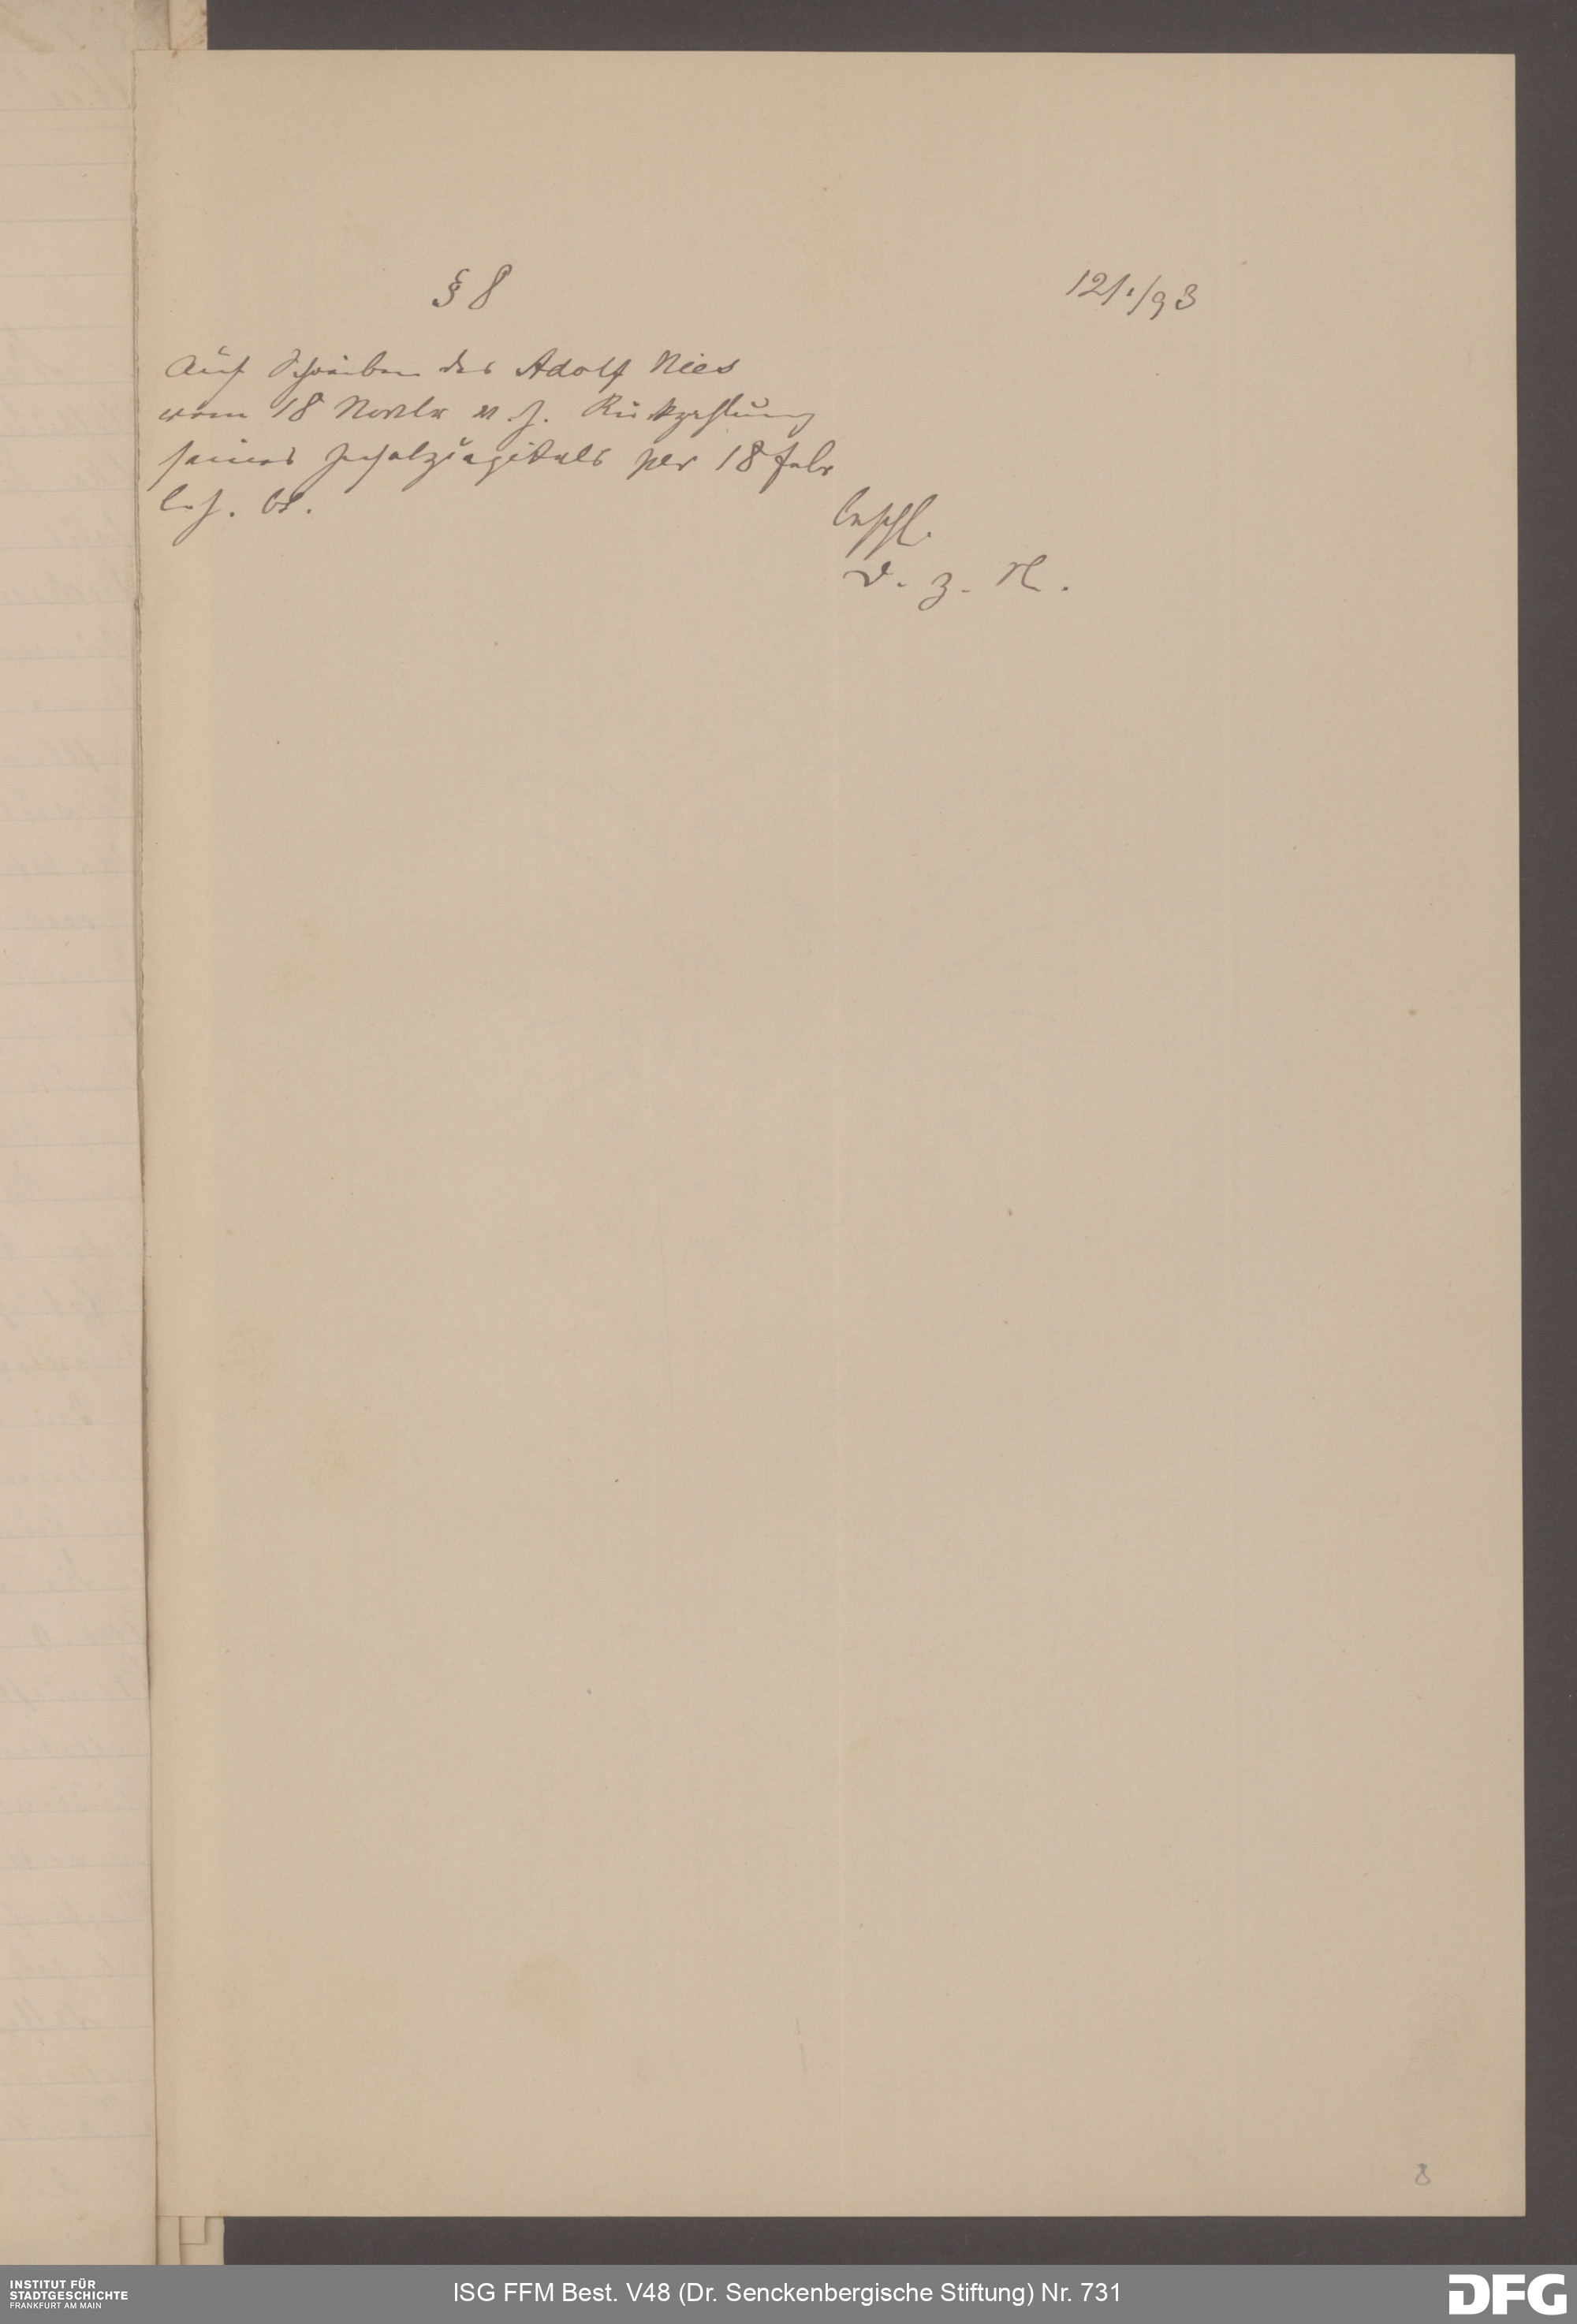 § 8
12/1/93
Auf Schreiben des Adolf Nies
vom 18 Novbr v. J. Rückzahlung
seines Insatzkapitals per 18 Febr
l. J. btr.
beschl.
d. z. R.
8
INSTITUT FÜR
STADTGESCHICHTE
FRANKFURT AM MAIN
ISG FFM Best. V48 (Dr. Senckenbergische Stiftung) Nr. 731
DFG